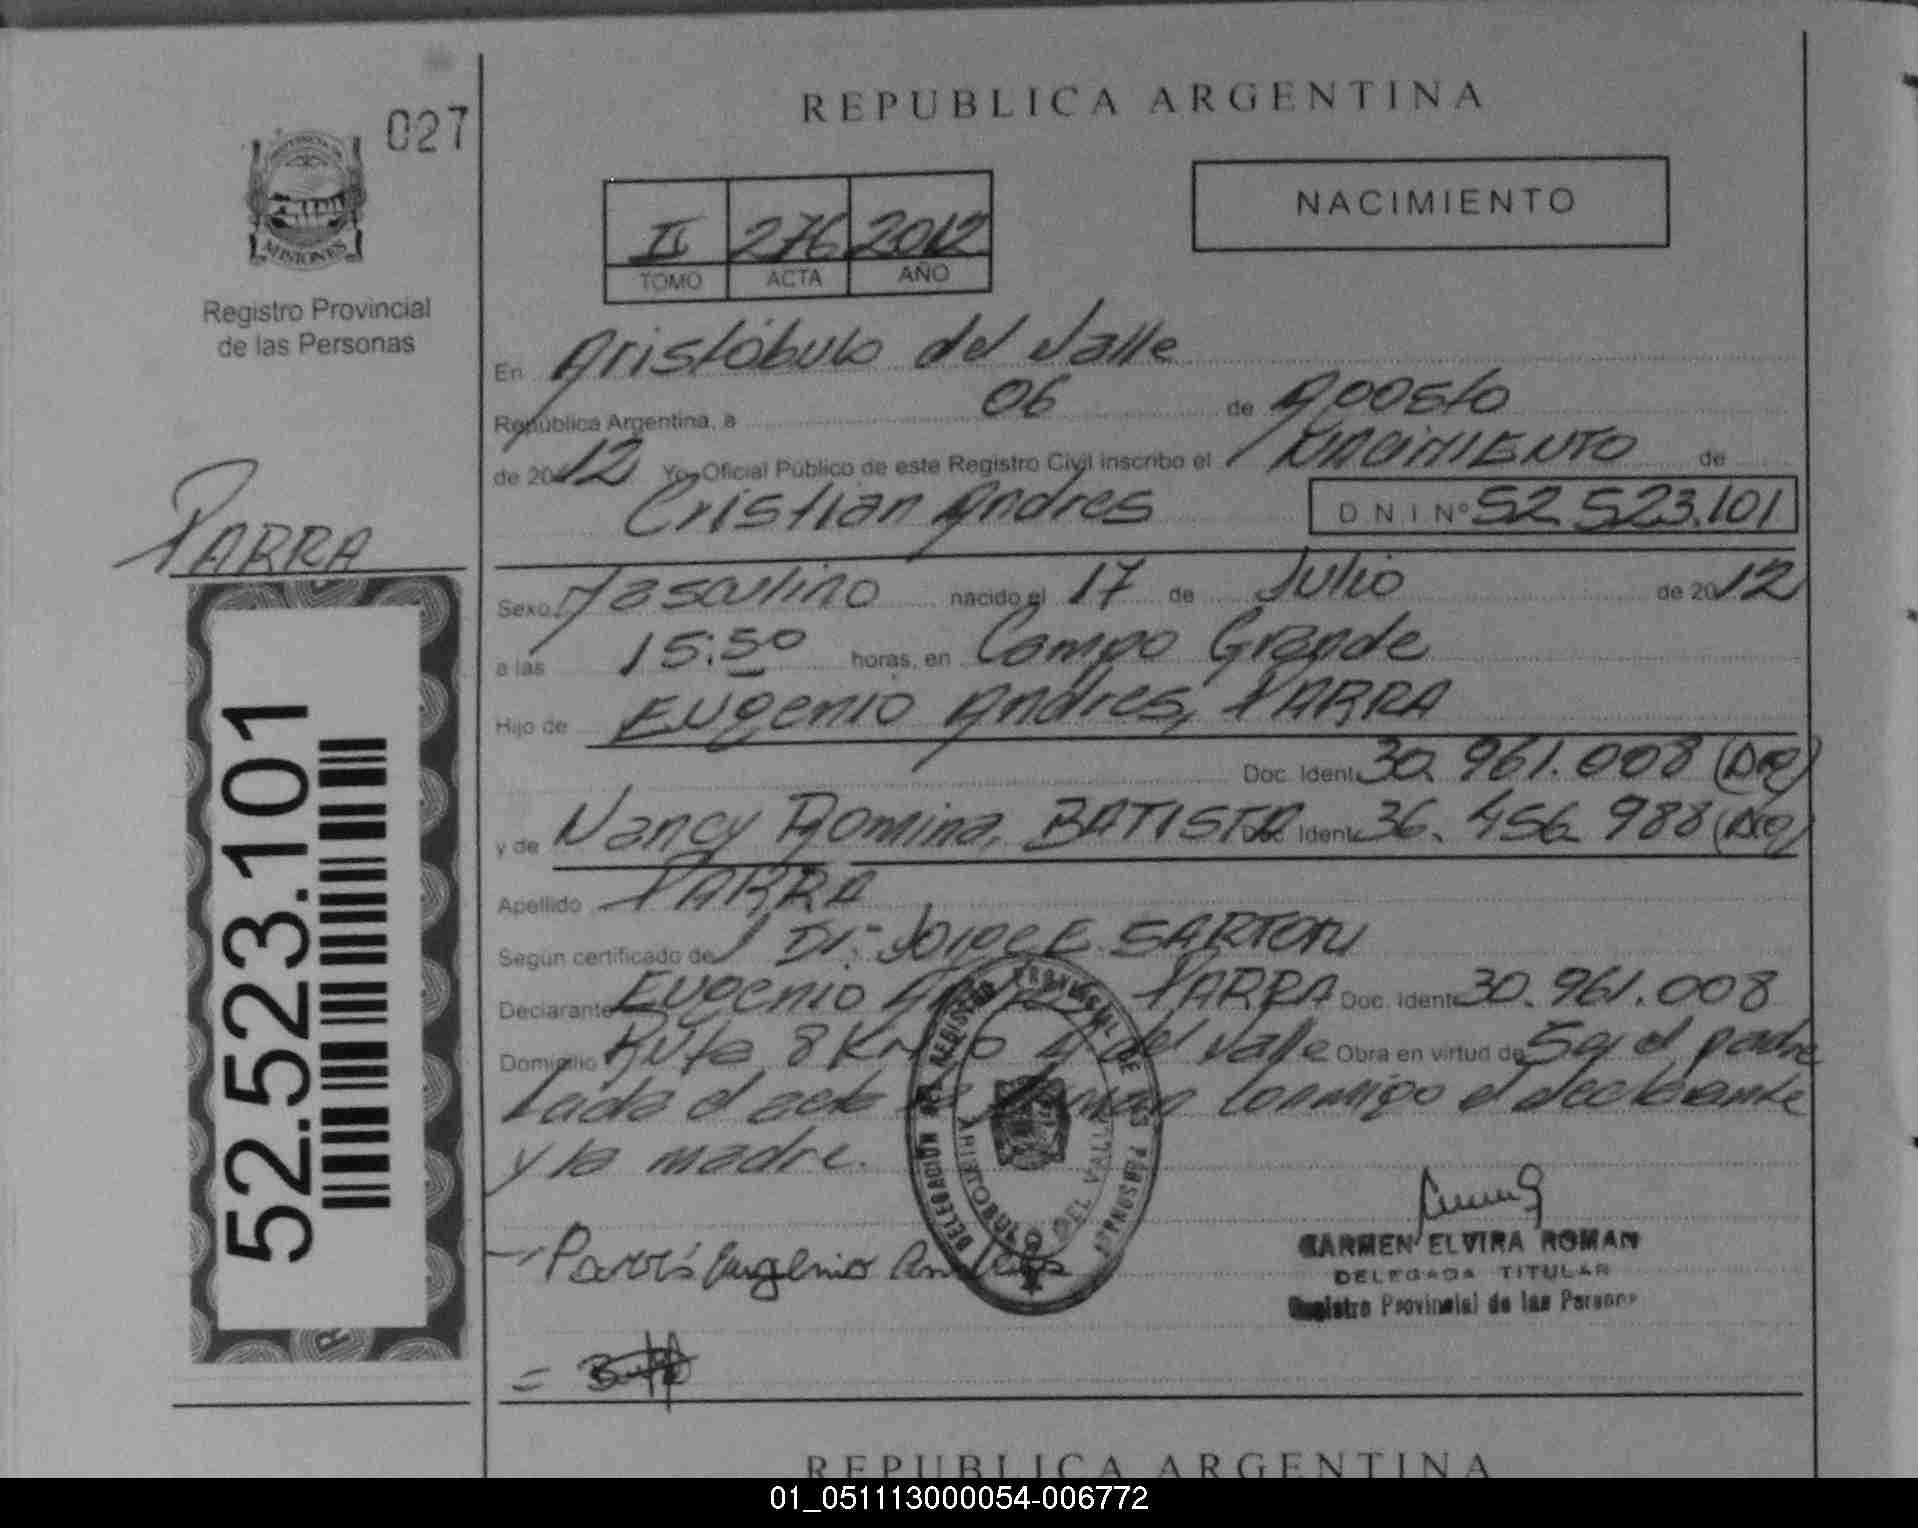 REPUBLICA ARGENTINA
027
PROVINCIA DE
MISIONES
Registro Provincial
de las Personas
NACIMIENTO
II 276 2012
TOMO ACTA AÑO
En Aristóbulo del Valle
República Argentina, a 06 de Agosto
de 2012 Yo, Oficial Público de este Registro Civil inscribo el NACIMIENTO de
Cristian Andres D N I Nº 52.523.101
PARRA
Sexo Masculino nacido el 17 de Julio de 2012
a las 15:50 horas, en Campo Grande
Hijo de Eugenio Andres, PARRA
Doc. Ident. 30.961.008 (AR)
y de Nancy Romina, BATISTA Doc. Ident. 36.456.988 (AR)
Apellido PARRA
Según certificado de Dr. JORGE SARTORI
Declarante Eugenio PARRA Doc. Ident. 30.961.008
Domicilio Ruta 8 Km A del Valle Obra en virtud de Ser el padre
el acta conmigo el declarante
y la madre.
52.523.101
DELEGACION DEL REGISTRO PROVINCIAL DE LAS PERSONAS
ARISTOBULO DEL VALLE
Parra Eugenio Andres
CARMEN ELVIRA ROMAN
DELEGADA TITULAR
Registro Provincial de las Personas
REPUBLICA ARGENTINA
01_051113000054-006772